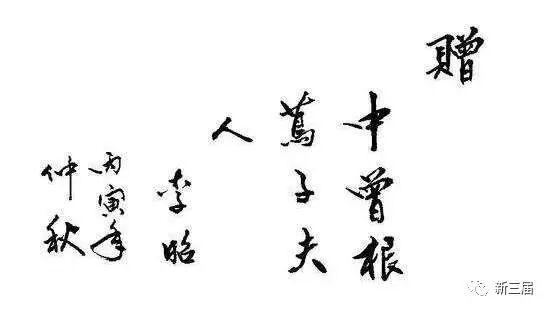 赠
中曾根
蔦子夫
人
李昭
丙寅年
仲秋
新三届